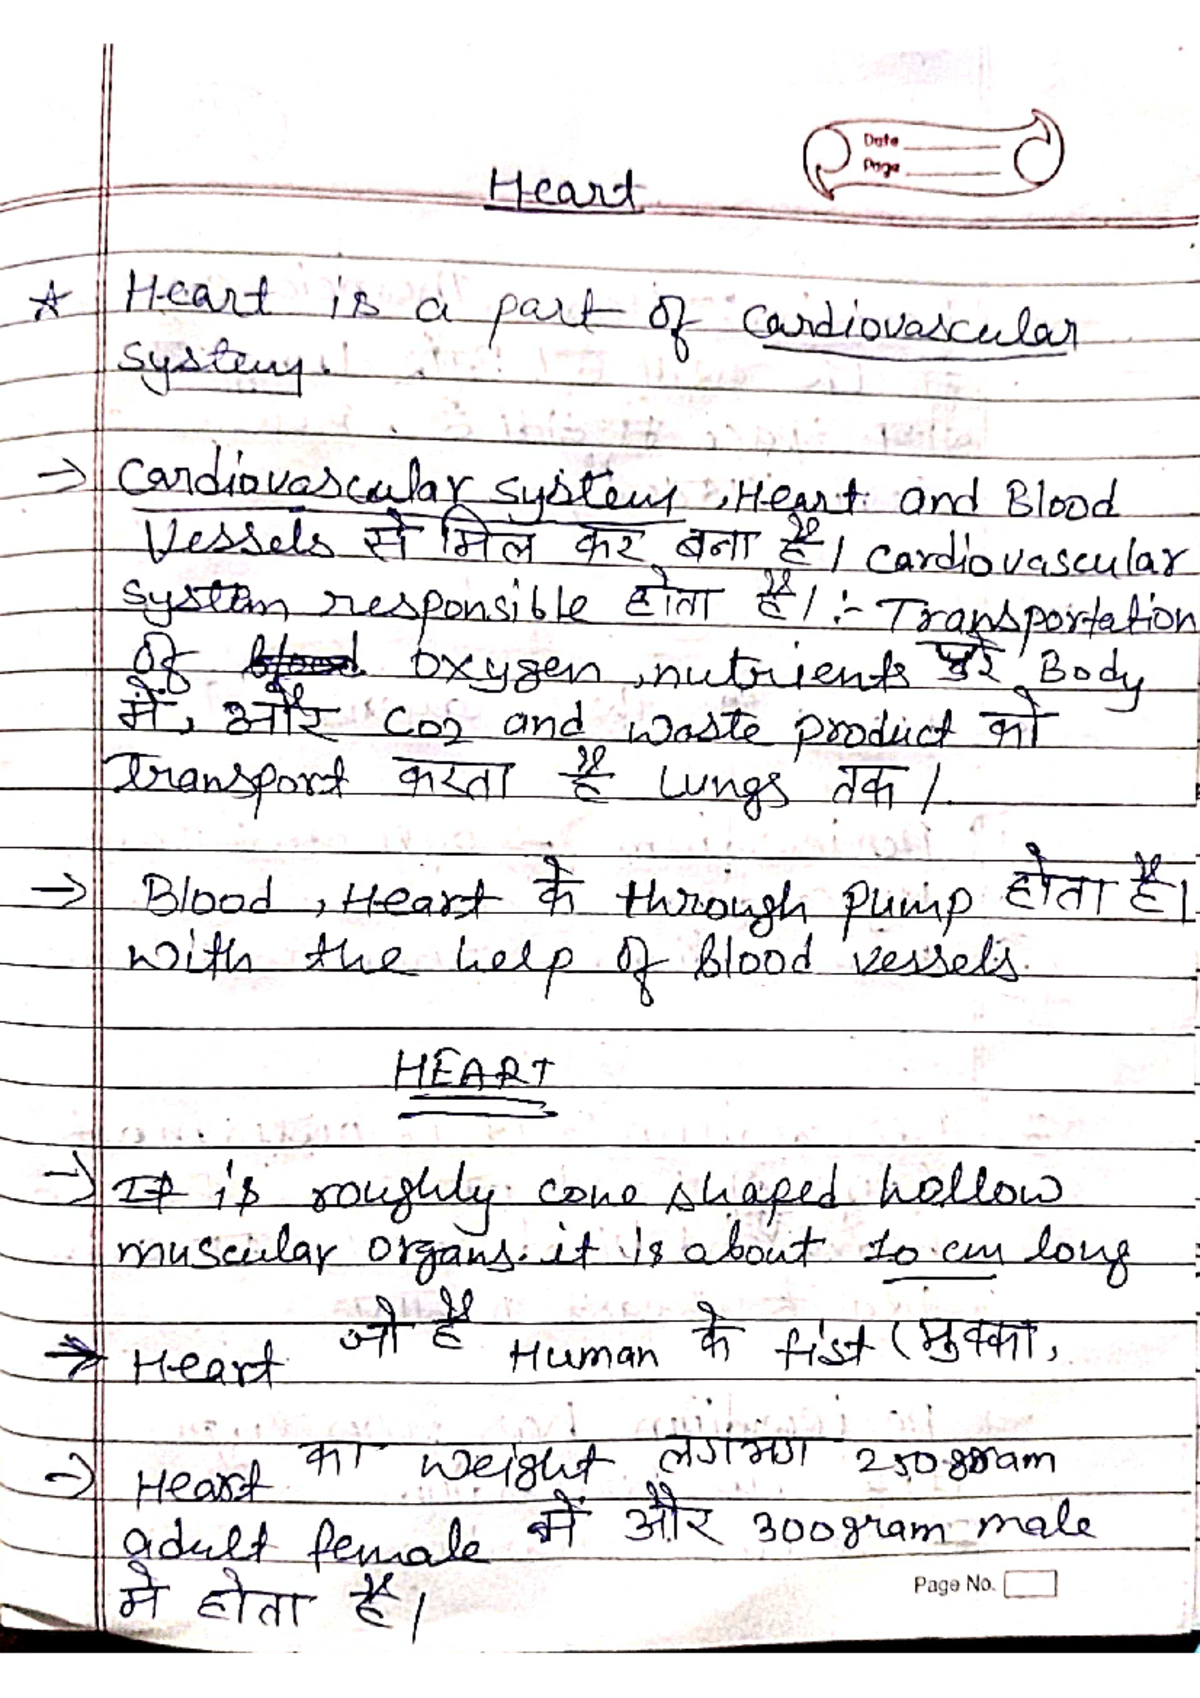 Date
Page
Heart
☆ Heart is a part of Cardiovascular
system.
→ Cardiovascular system, Heart and Blood
Vessels से मिल कर बना है। Cardiovascular
system responsible होता है। :- Transportation
of blood oxygen, nutrients पुरे Body
मे, और CO2 and waste product को
Transport करता है Lungs तक।
→ Blood, Heart के through pump होता है।
with the help of blood vessels.
HEART
→ It is roughly cone shaped hollow
muscular organs. it is about 10 cm long
→ Heart जो है Human के fist (मुक्का,
→ Heart का weight लगभग 250 gram
adult female में और 300 gram male
मे होता है।
Page No.